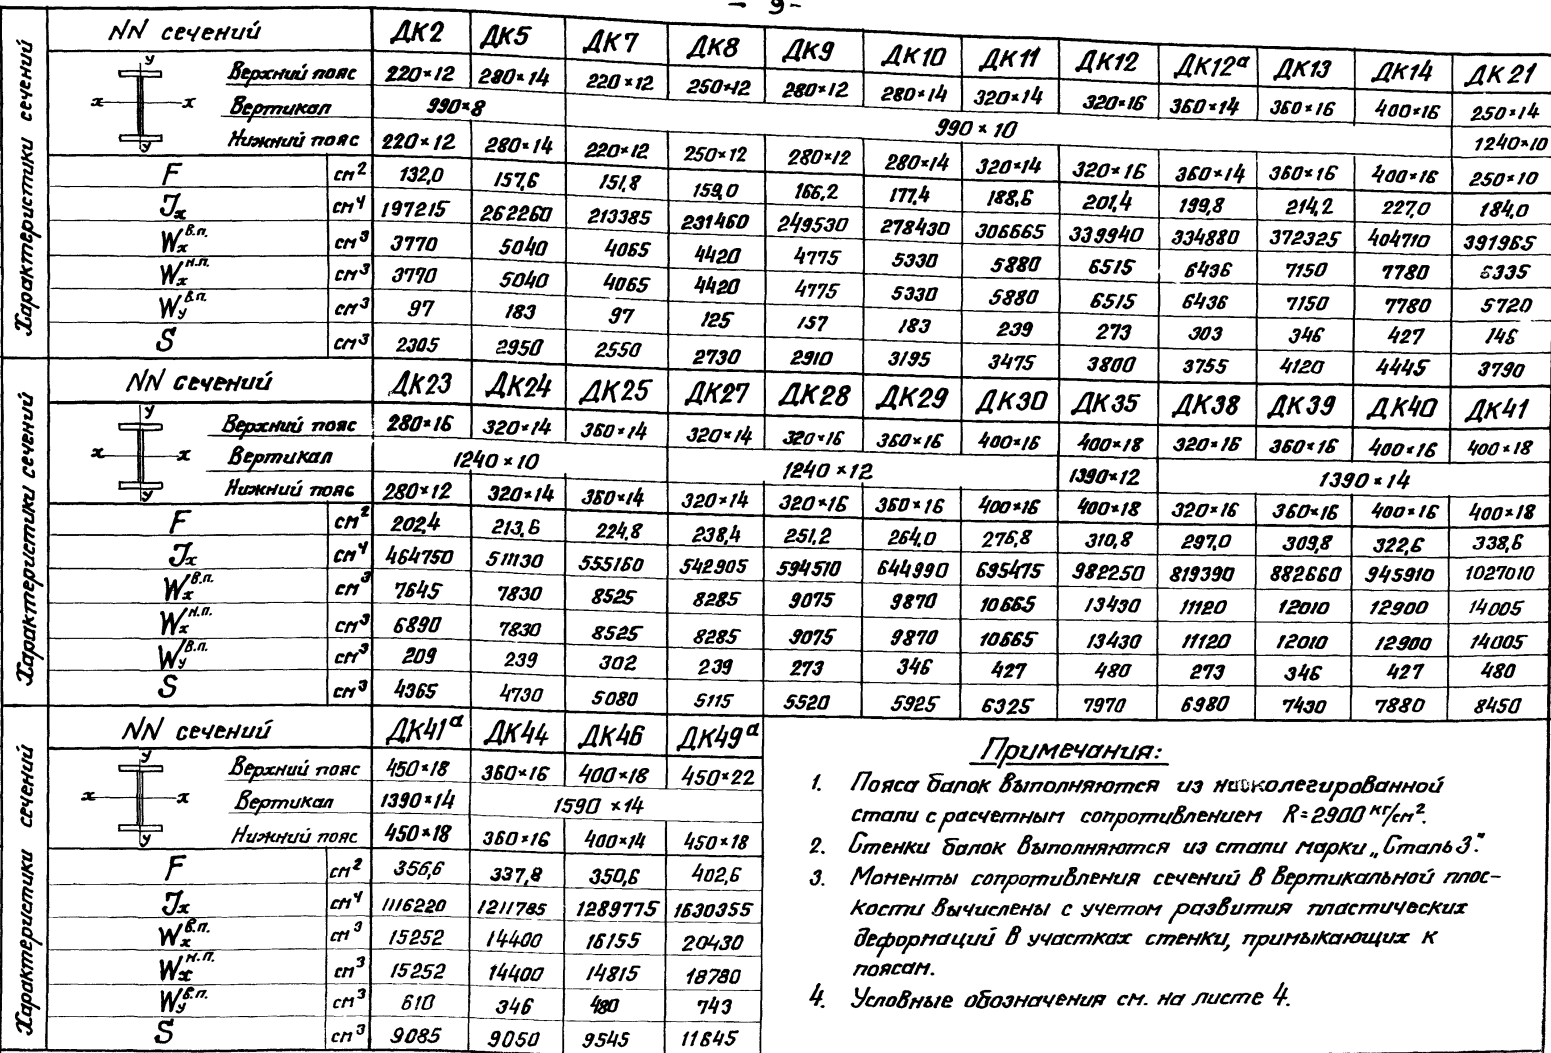 - 9-
NN сечений ДК2 ДК5 ДК7 ДК8 ДК9 ДК10 ДК11 ДК12 ДК12а ДК13 ДК14 ДК21
Верхний пояс 220×12 280×14 220×12 250×12 280×12 280×14 320×14 320×16 360×14 360×16 400×16 250×14
Вертикал 990×8 990×10 1240×10
Нижний пояс 220×12 280×14 220×12 250×12 280×12 280×14 320×14 320×16 360×14 360×16 400×16 250×10
y
x x
y
Характеристики сечений
F см² 132,0 157,6 151,8 159,0 166,2 177,4 188,6 201,4 199,8 214,2 227,0 184,0
Jx см⁴ 197215 262260 213385 231460 249530 278430 306665 339940 334880 372325 404710 391965
Wx в.п. см³ 3770 5040 4065 4420 4775 5330 5880 6515 6436 7150 7780 6335
Wx н.п. см³ 3770 5040 4065 4420 4775 5330 5880 6515 6436 7150 7780 5720
Wy в.п. см³ 97 183 97 125 157 183 239 273 303 346 427 146
S см³ 2305 2950 2550 2730 2910 3195 3475 3800 3755 4120 4445 3790
NN сечений ДК23 ДК24 ДК25 ДК27 ДК28 ДК29 ДК30 ДК35 ДК38 ДК39 ДК40 ДК41
Верхний пояс 280×16 320×14 360×14 320×14 320×16 360×16 400×16 400×18 320×16 360×16 400×16 400×18
Вертикал 1240×10 1240×12 1390×12 1390×14
Нижний пояс 280×12 320×14 360×14 320×14 320×16 360×16 400×16 400×18 320×16 360×16 400×16 400×18
y
x x
y
Характеристики сечений
F см² 202,4 213,6 224,8 238,4 251,2 264,0 276,8 310,8 297,0 309,8 322,6 338,6
Jx см⁴ 464750 511130 555160 542905 594510 644990 695475 982250 819390 882660 945910 1027010
Wx в.п. см³ 7645 7830 8525 8285 9075 9870 10665 13430 11120 12010 12900 14005
Wx н.п. см³ 6890 7830 8525 8285 9075 9870 10665 13430 11120 12010 12900 14005
Wy в.п. см³ 209 239 302 239 273 346 427 480 273 346 427 480
S см³ 4365 4730 5080 5115 5520 5925 6325 7970 6980 7430 7880 8450
NN сечений ДК41а ДК44 ДК46 ДК49а
Верхний пояс 450×18 360×16 400×18 450×22
Вертикал 1390×14 1590×14
Нижний пояс 450×18 360×16 400×14 450×18
y
x x
y
Характеристики сечений
F см² 356,6 337,8 350,6 402,6
Jx см⁴ 1116220 1211785 1289775 1630355
Wx в.п. см³ 15252 14400 16155 20430
Wx н.п. см³ 15252 14400 14815 18780
Wy в.п. см³ 610 346 480 743
S см³ 9085 9050 9545 11645
Примечания:
1. Пояса балок выполняются из низколегированной
стали с расчетным сопротивлением R=2900 кг/см².
2. Стенки балок выполняются из стали марки „Сталь 3".
3. Моменты сопротивления сечений в вертикальной плос-
кости вычислены с учетом развития пластических
деформаций в участках стенки, примыкающих к
поясам.
4. Условные обозначения см. на листе 4.